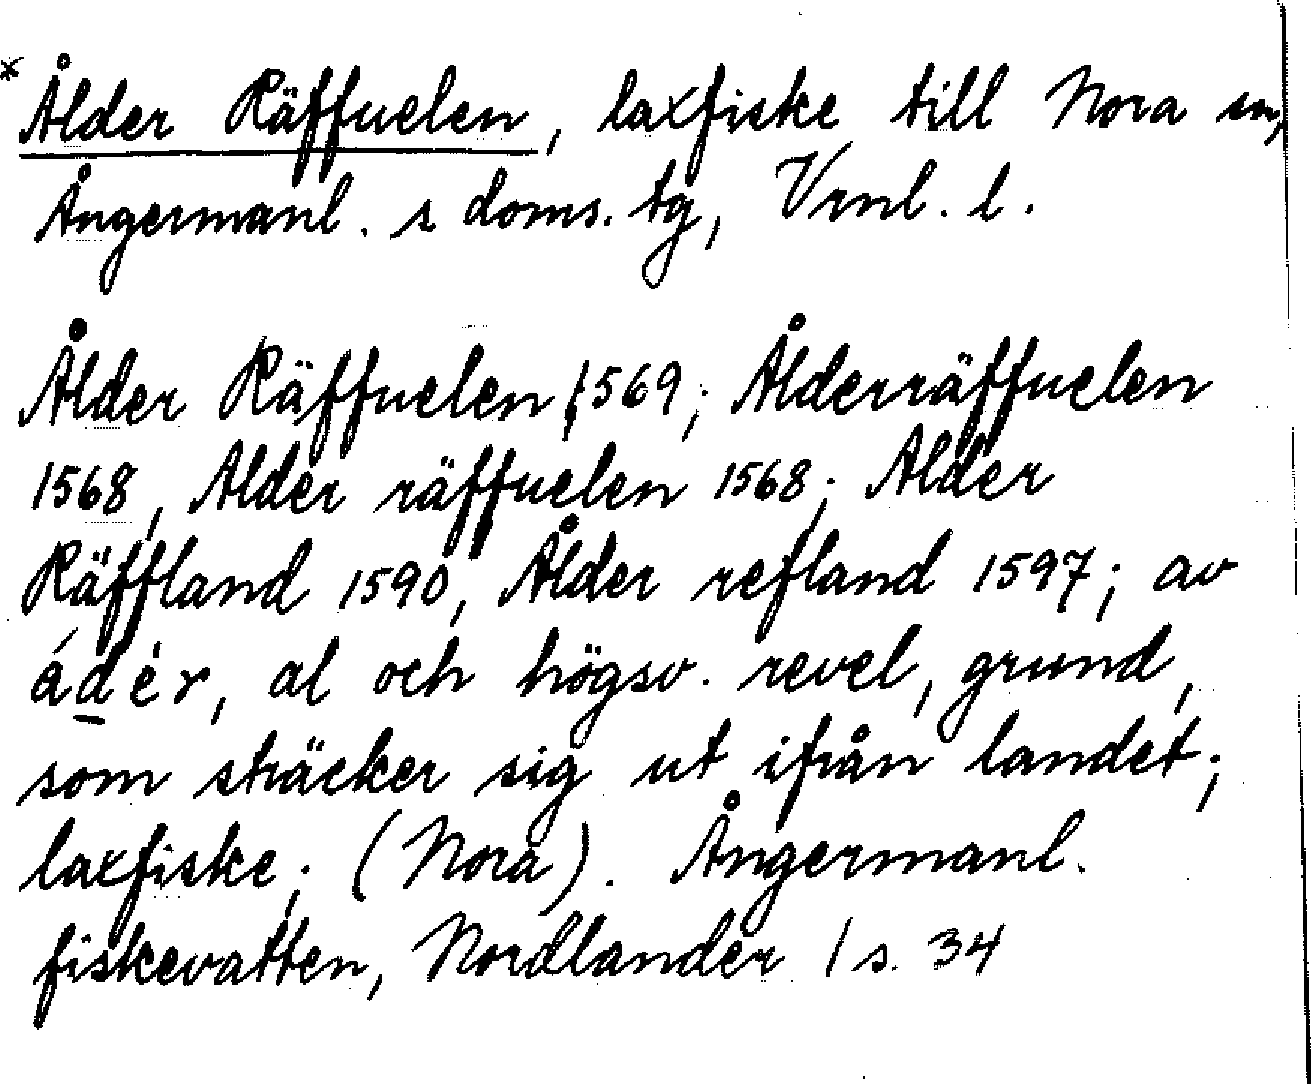 * Ålder Räffuelen, laxfiske till Nora sn,
Ångermanl. s doms. tg, Vrnl. l.
Ålder Räffuelen 1569; Ålderräffuelen
1568, Alder räffuelen 1568; Alder
Räffland 1590, Ålder refland 1597; av
ádér, al och högsv. revel, grund,
som sträcker sig ut ifrån landet;
laxfiske; (Nora). Ångermanl.
fiskevatten, Nordlander / s. 34